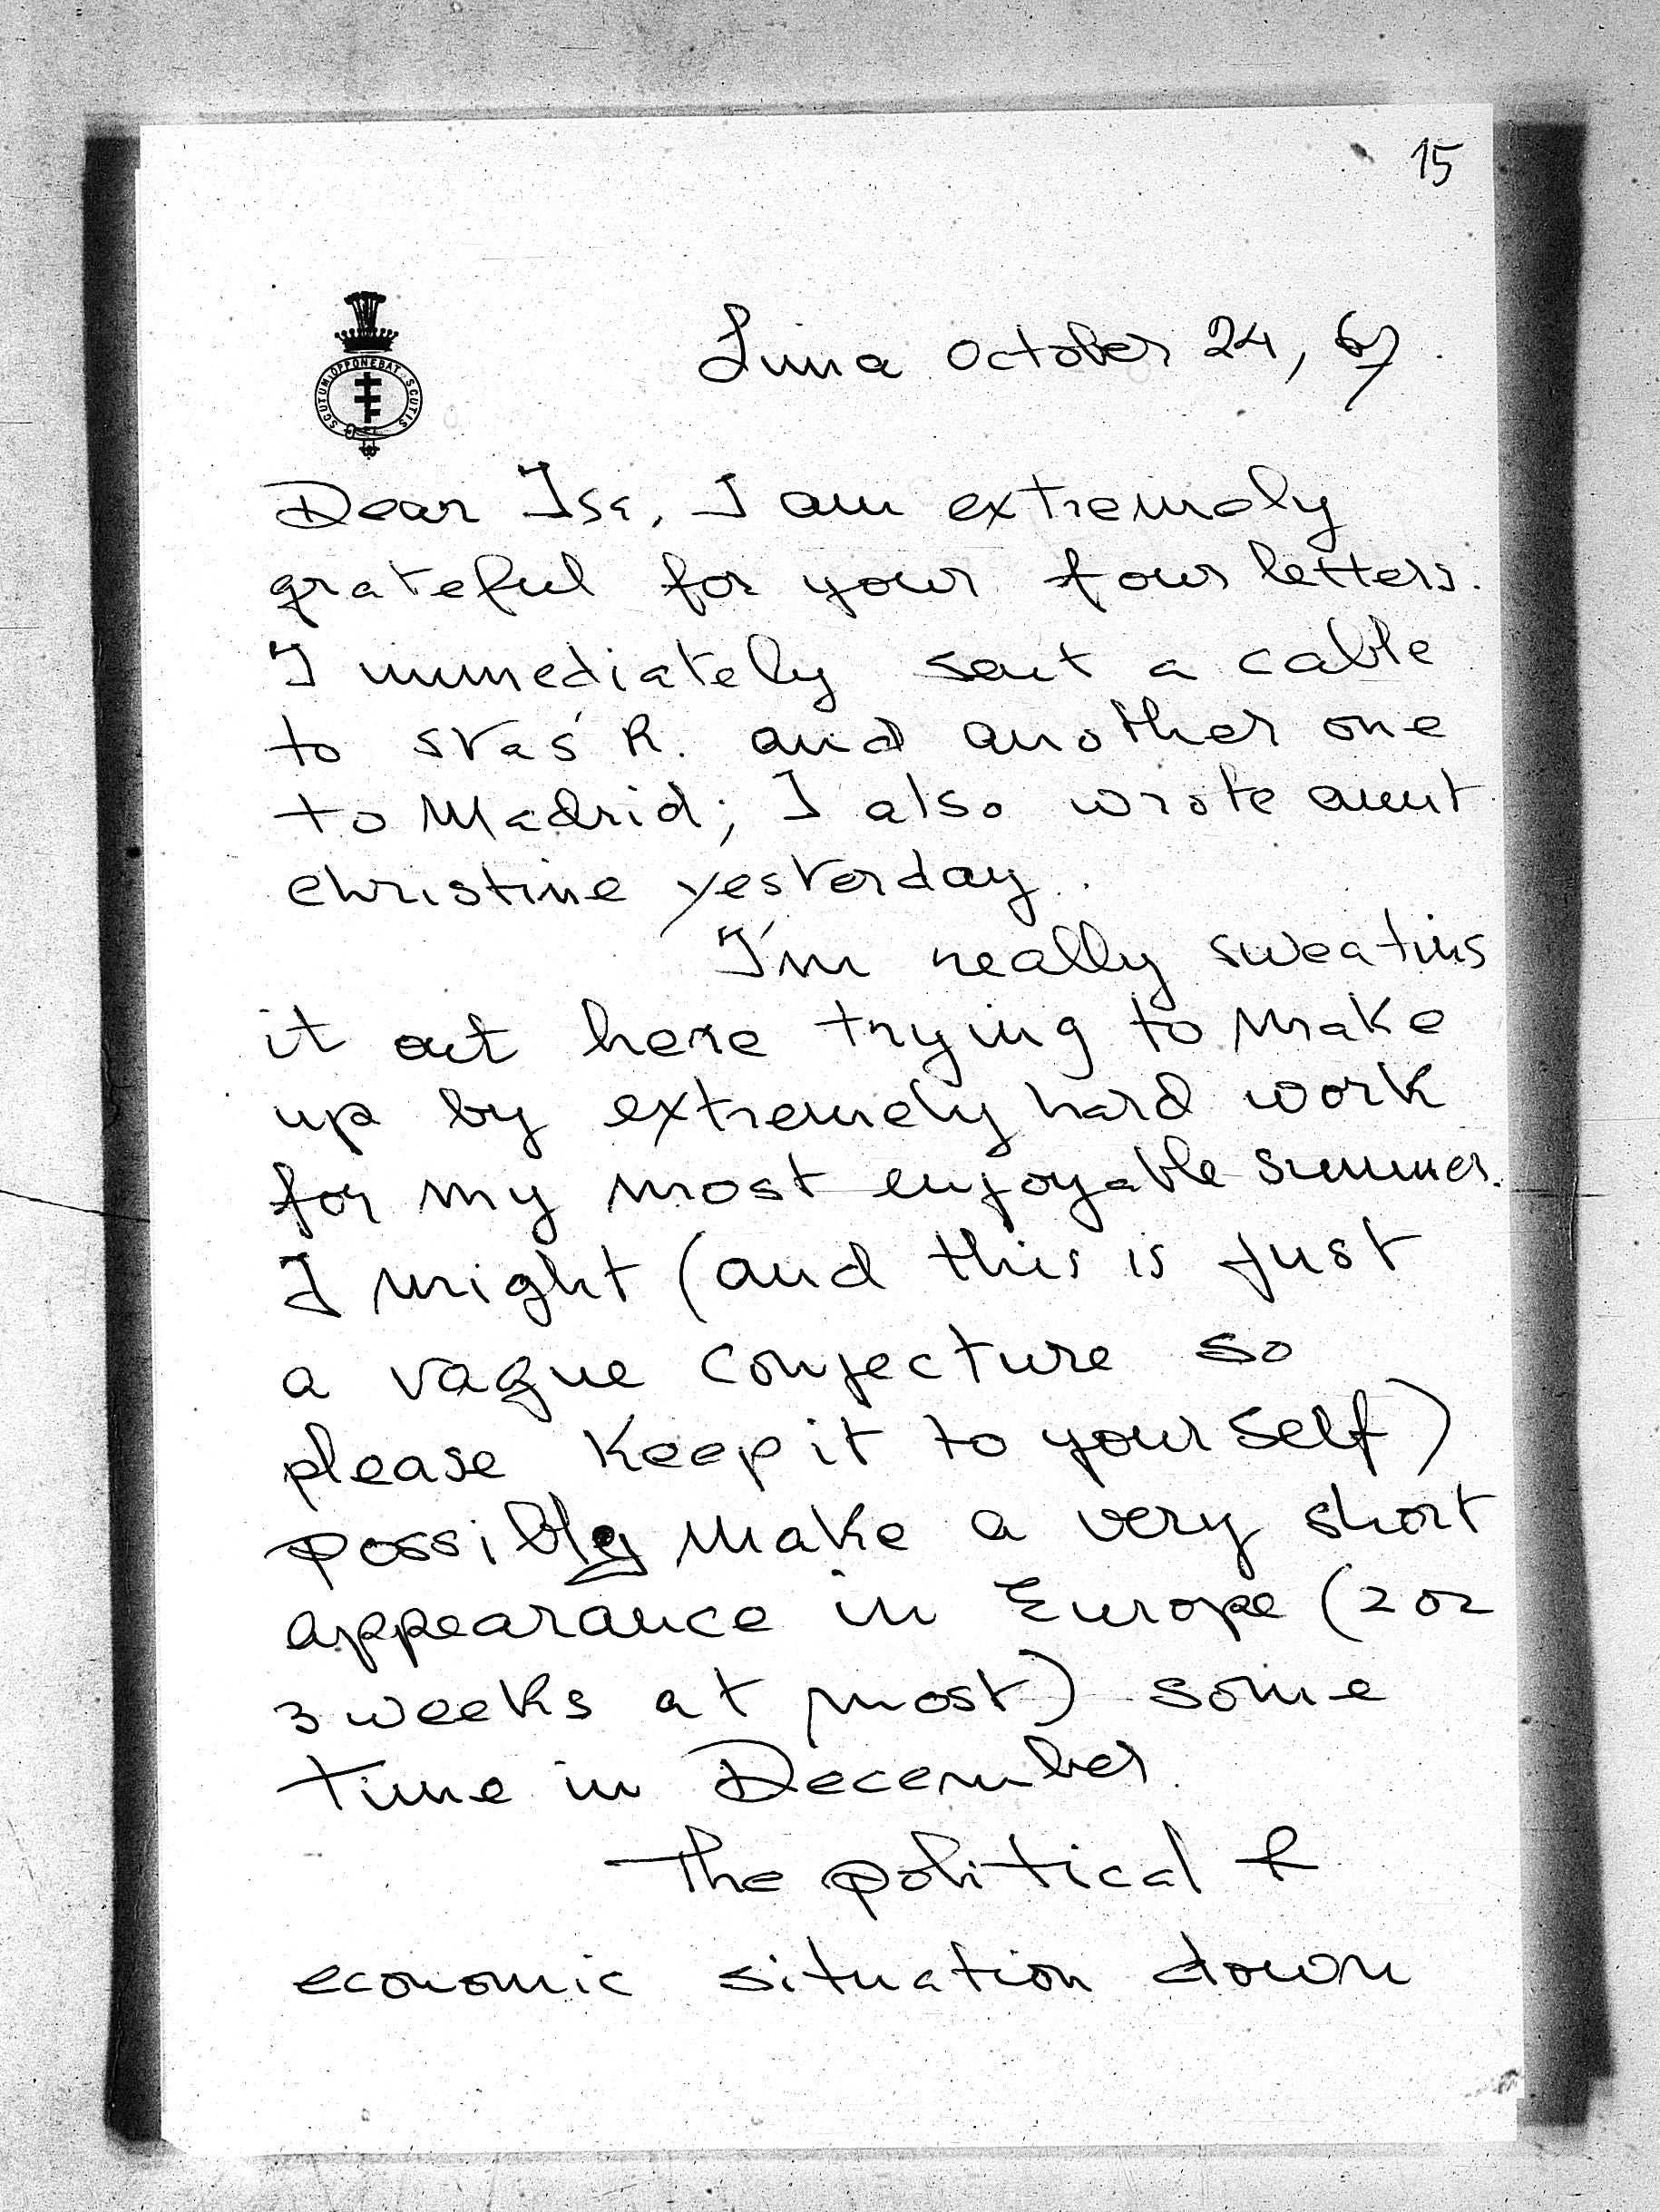 15
SCUTUM OPPONEBAT SCUTIS
Lima October 24, 67.
Dear Isa, I am extremely
grateful for your four letters.
I immediately sent a cable
to Staś R. and another one
to Madrid; I also wrote aunt
Christine yesterday.
I'm really sweating
it out here trying to make
up by extremely hard work
for my most enjoyable summer.
I might (and this is just
a vague conjecture so
please keep it to yourself)
possibly make a very short
appearance in Europe (2 or
3 weeks at most) some
time in December.
The political &
economic situation down